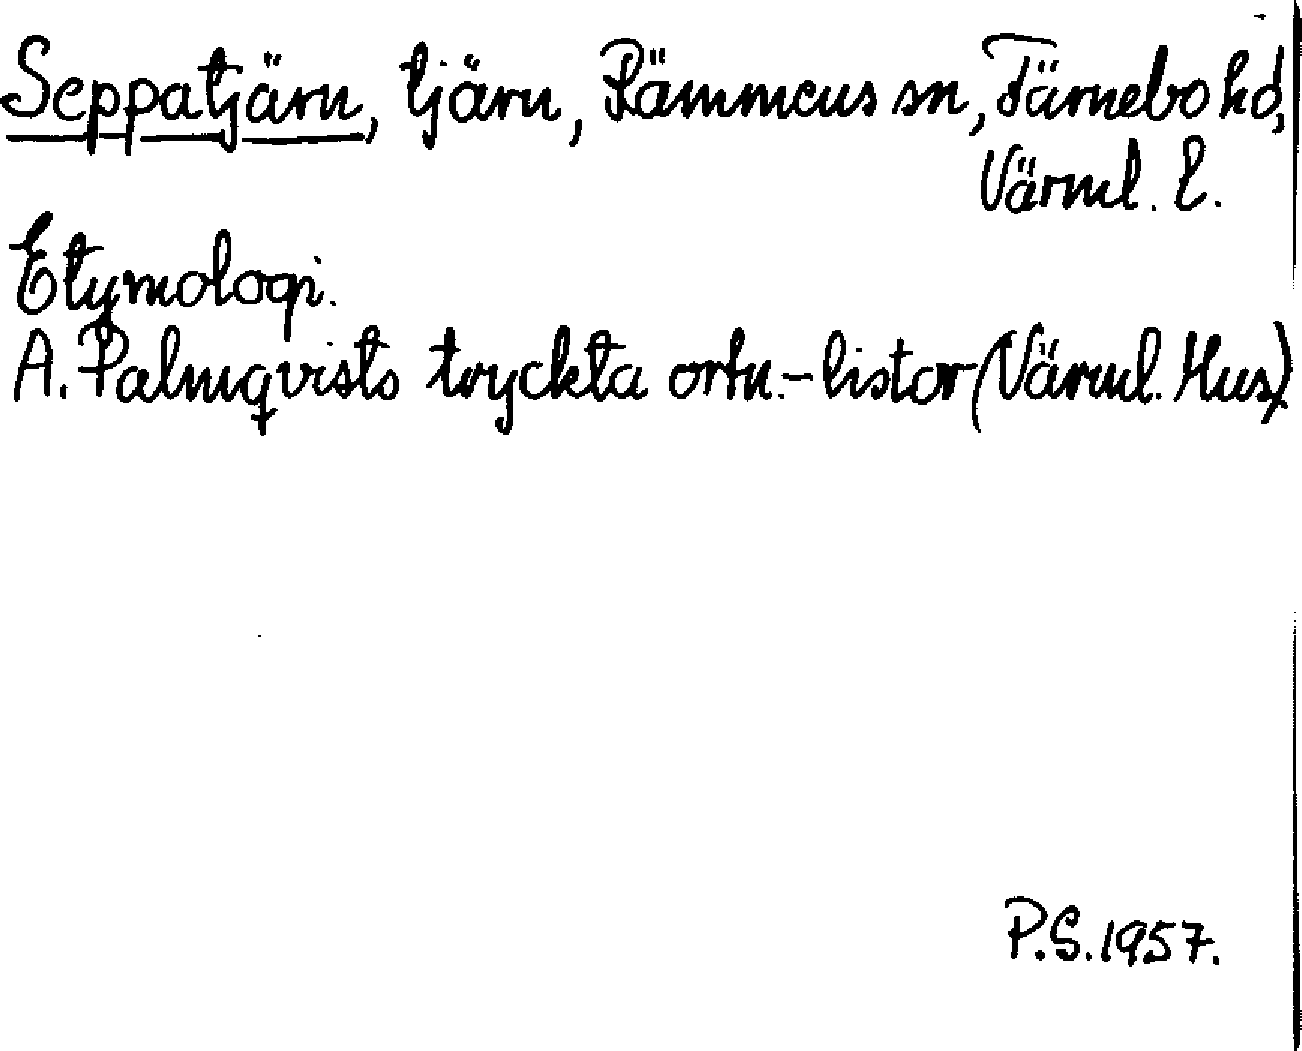 Seppatjärn, tjärn, Rämmens sn, Färnebo hd,
Värml. l.
Etymologi.
A. Palmqvists tryckta ortn.-listor (Värml. Mus.)
P.S. 1957.